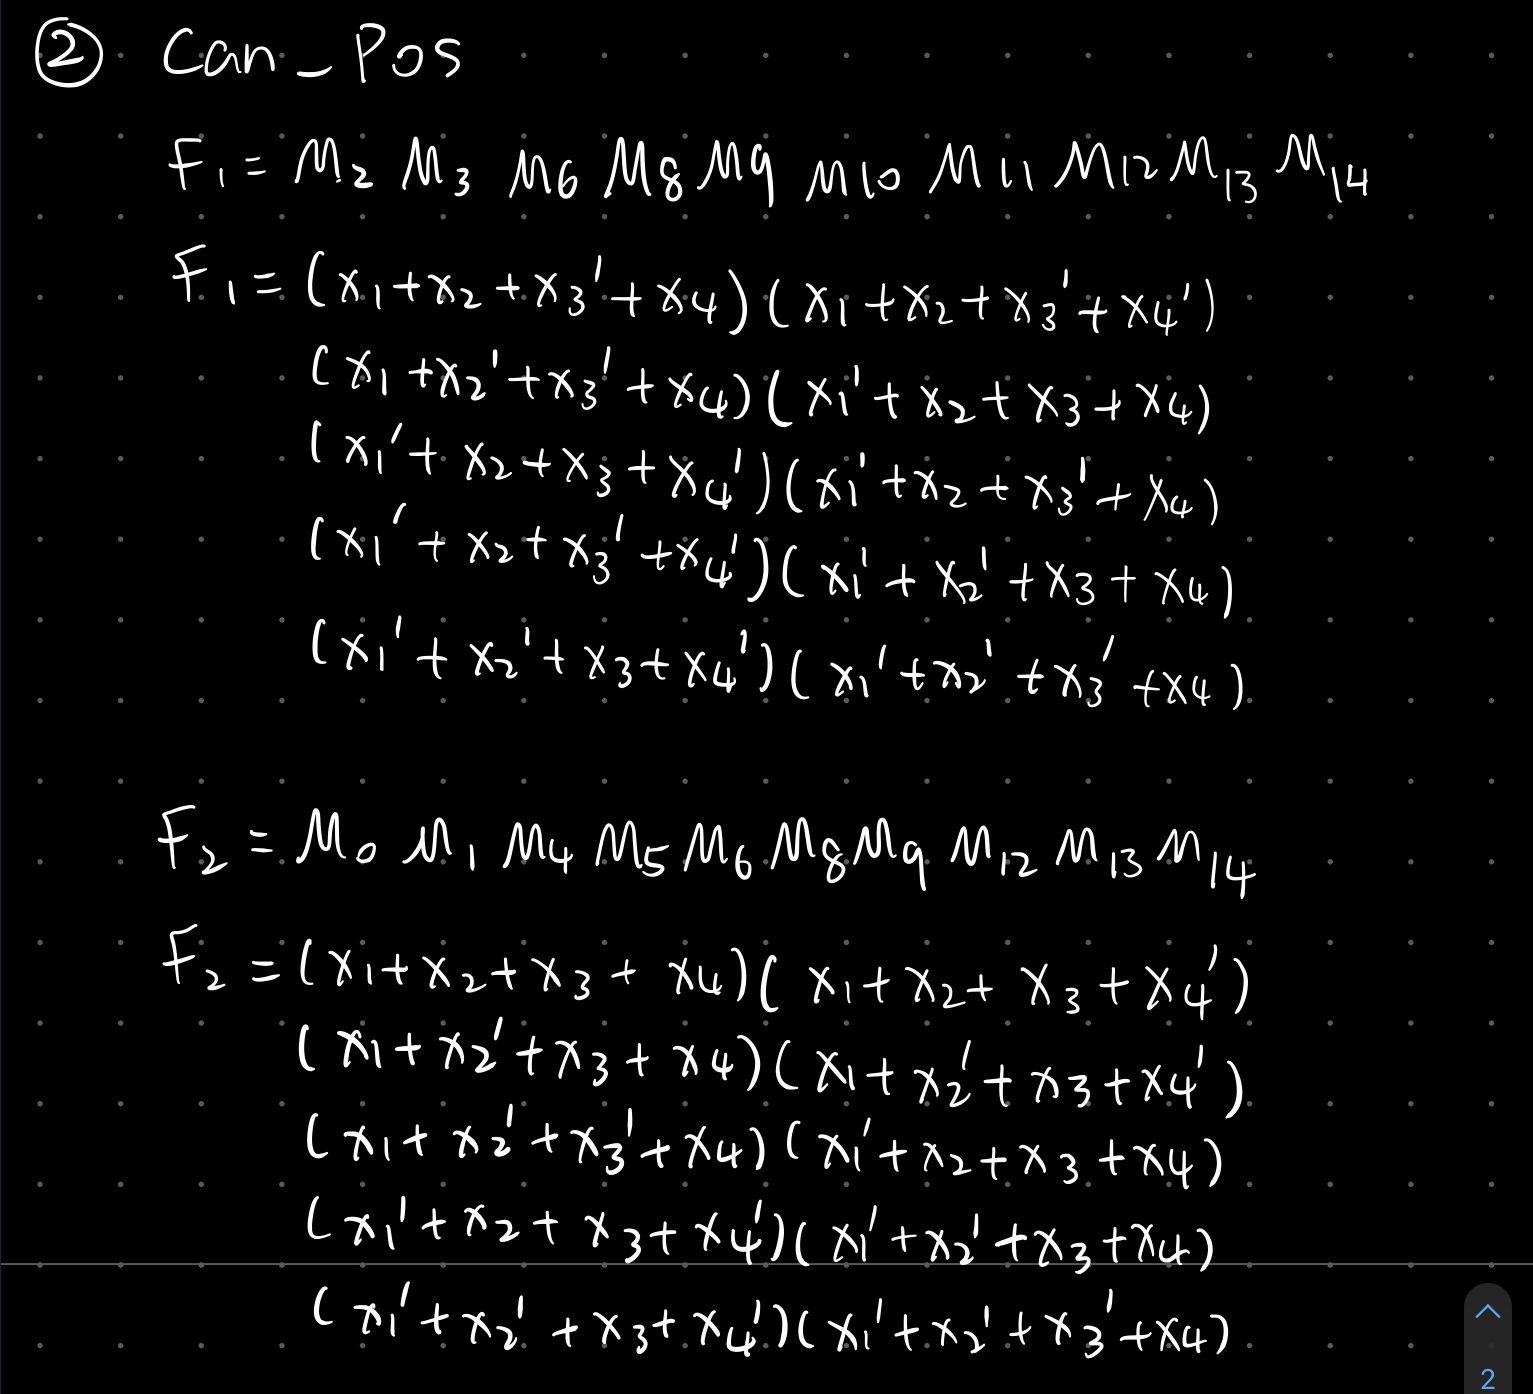 ② Can_Pos
F₁ = M₂ M₃ M6 M8 M9 M10 M11 M12 M₁₃ M₁₄
F₁ = (x₁+x₂+x₃'+x₄)(x₁+x₂+x₃'+x₄')
(x₁+x₂'+x₃'+x₄)(x₁'+x₂+x₃+x₄)
(x₁'+x₂+x₃+x₄')(x₁'+x₂+x₃'+x₄)
(x₁'+x₂+x₃'+x₄')(x₁'+x₂'+x₃+x₄)
(x₁'+x₂'+x₃+x₄')(x₁'+x₂'+x₃'+x₄)
F₂ = M₀ M₁ M₄ M₅ M₆ M₈ M₉ M₁₂ M₁₃ M₁₄
F₂ = (x₁+x₂+x₃+x₄)(x₁+x₂+x₃+x₄')
(x₁+x₂'+x₃+x₄)(x₁+x₂'+x₃+x₄')
(x₁+x₂'+x₃'+x₄)(x₁'+x₂+x₃+x₄)
(x₁'+x₂+x₃+x₄')(x₁'+x₂'+x₃+x₄)
(x₁'+x₂'+x₃+x₄')(x₁'+x₂'+x₃'+x₄)
2